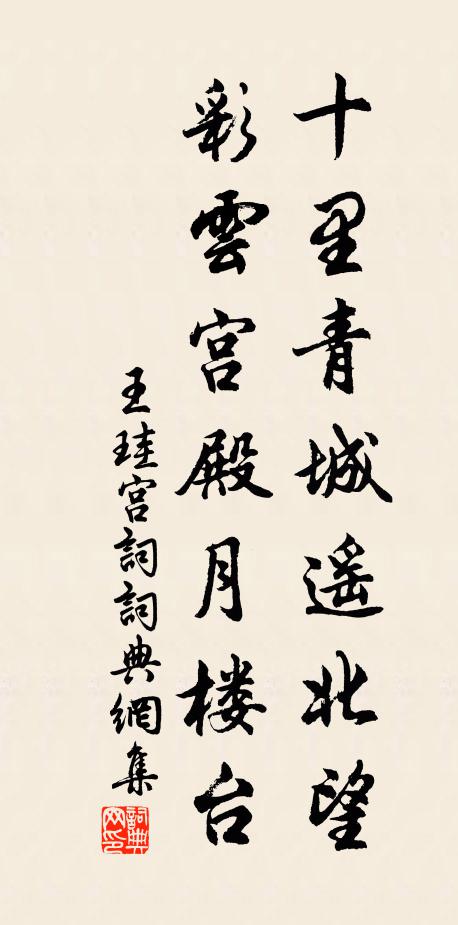 十里青城遥北望
彩雲宫殿月楼台
王珪宫詞詞典網集
詞典
网印